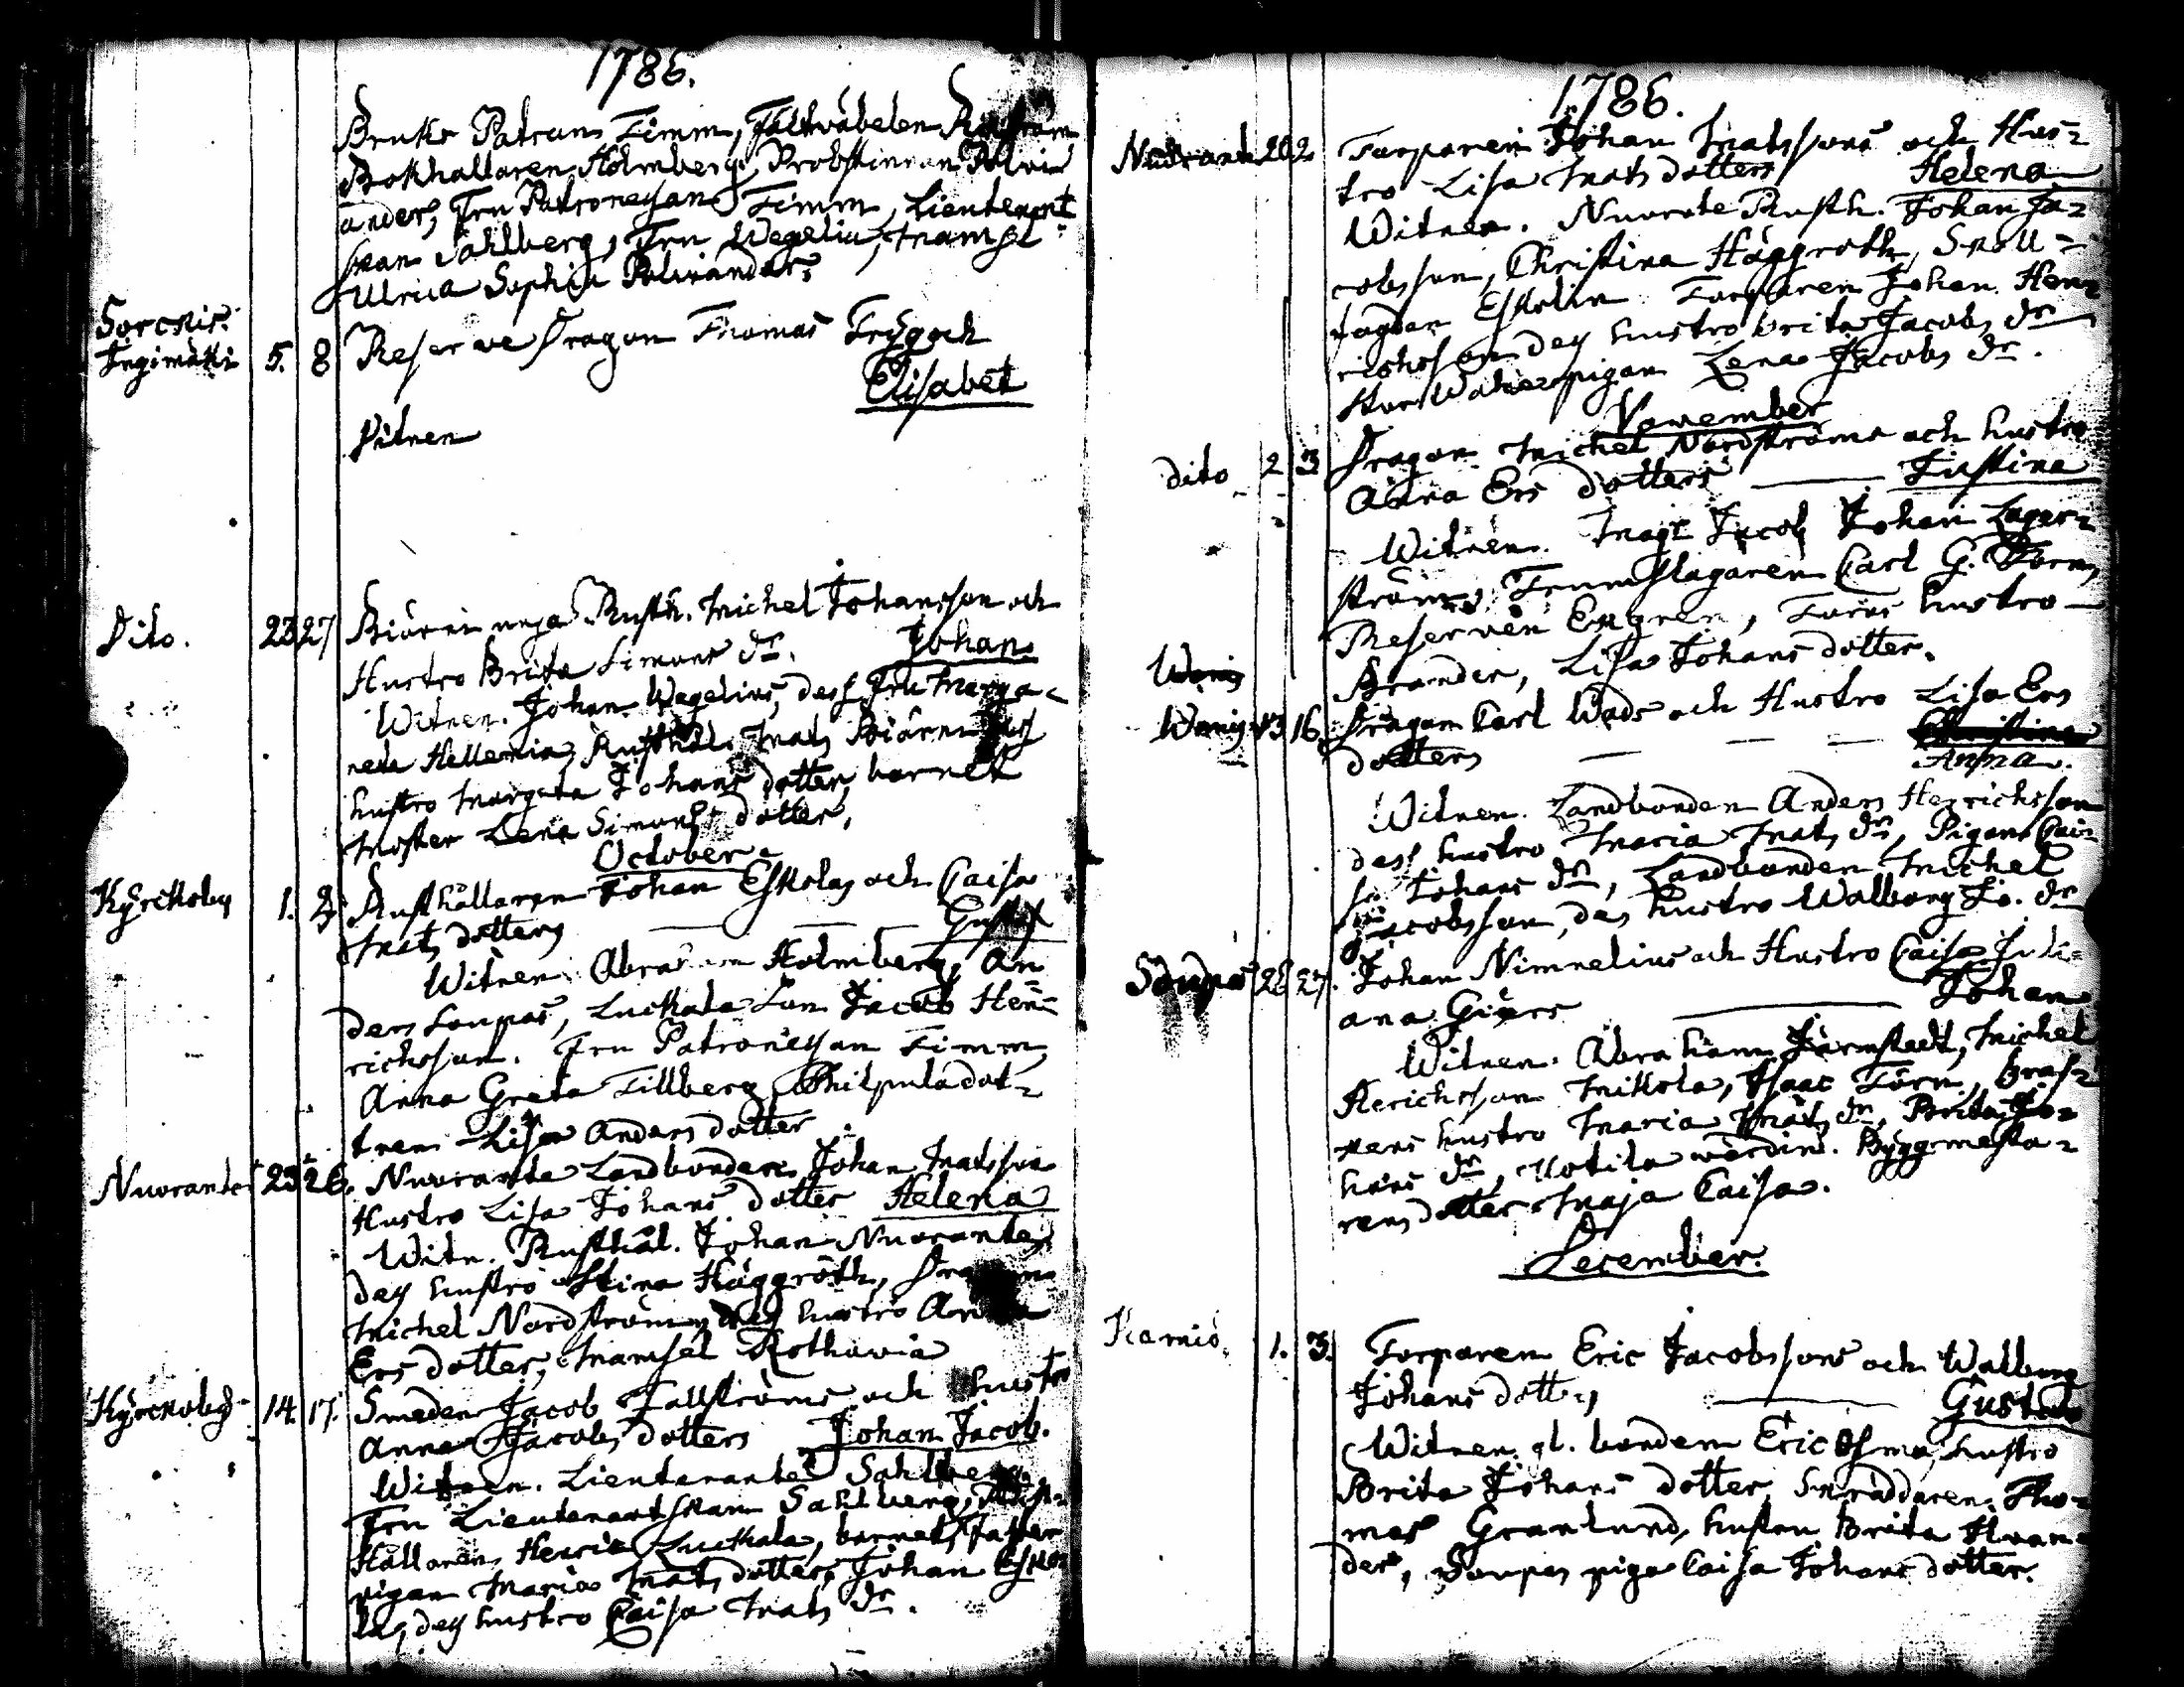 1786.
Bruks Patron Timm, Fältväbelen
Bokhållaren Holmberg, Probstinnan Polvi
ander, Fru Patronessan Timm, Lieutenant
skan Sahlberg, Fru Wegelia, Mamsel
Ulrica Sophia Polviander.
Torckis.
Ingimäki 5. 8 Reserve Dragon Thomas Trygg och
Elisabet
Vitnen
Dito. 23 27 Biörni unga Rusth. Michel Johansson och
Hustro Brita Simons dr. Johan
Witnen. Johan Wegelius, dess Fru Marga-
reta Hellenia, Rusthål. Mats Biörni
hustro Margeta Johans dotter, barnets
Moster Lena Simons dotter,
October.
Kyrckoby 1. 2 Rusthållaren Johan Eskolas och Caisa
Mats dotters Gustaf
Witnen. Abraham Holmberg, An
ders Soupas, Luckala Son Jacob Hen-
richsson. Fru Patronessan Timm,
Anna Greta Tillberg, Philpula dot-
tren Lisa Anders dotter
Nuorante 23 26. Nuorante Landbonden Johan Matsson
Hustro Lisa Johans dotter Helena
Witn. Rusthål. Johan Nuorante,
des hustro Stina Häggroth,
Michel Nordström, des hustro Anna
Ers dotter, Mamsel Rothovia
Kyrckoby 14. 17. Smeden Jacob Fallströms och hustr
Anna Jacobs dotters Johan Jacob.
Witnen. Lieutenanten Sahlberg
Fru Lieutenantskan Sahlberg, Rust-
Hållaren Henric Luckala, barnets Faster
pigan Maria Mats dotter, Johan Esko-
las, des hustro Caisa Mats dr.
1786.
Nuorante 20 2 Torparen Johan Matssons och Hus-
tro Lisa Mats dotters Helena
Witnen. Nuorante Rusth. Johan Ja-
cobsson, Christina Häggroth, Snåll-
fogden Eskolin Torparen Johan Hen-
richsson des hustro Brita Jacobs dr
pigan Lena Jacobs dr.
November
dito 2 3 Dragon Michel Nordströms och hustro
Anna Ers dotters Justina
Witnen. Jacob Johan Lager-
ström, Trumslagaren Carl G.
Reserven Ekgren, Furirs hustro
Brander, Lisa Johans dotter.
Wanis 13 16 Dragon Carl Wads och Hustro Lisa Ers
dotters Christina
Anna.
Witnen. Landbonden Anders Henrichsson
dess hustro Maria Mats dr, Pigan Cai-
sa Johans dr, Landbonden Michel
Jacobsson, des hustro Walborg Jo. dr
Soupas 26 27. Johan Nimnelius och Hustro Caisa Juli-
ana Giers Johan
Witnen. Abraham Järnstedt, Michel
Henrichsson Mikola, Isaac Törn,
hustro Maria Mats dr, Brita Jo-
hans dr, Kotila wärdin. Byggmästa-
rens dotter Maja Caisa.
December.
Karniö. 1. 3. Torparen Eric Jacobssons och Walborg
Johans dotters Gustav
Witnen gl. bonden Eric Osma, hustro
Brita Johans dotter, Skräddaren Tho-
mas Granlund, hustru Brita
Soupas piga Caisa Johans dotter.